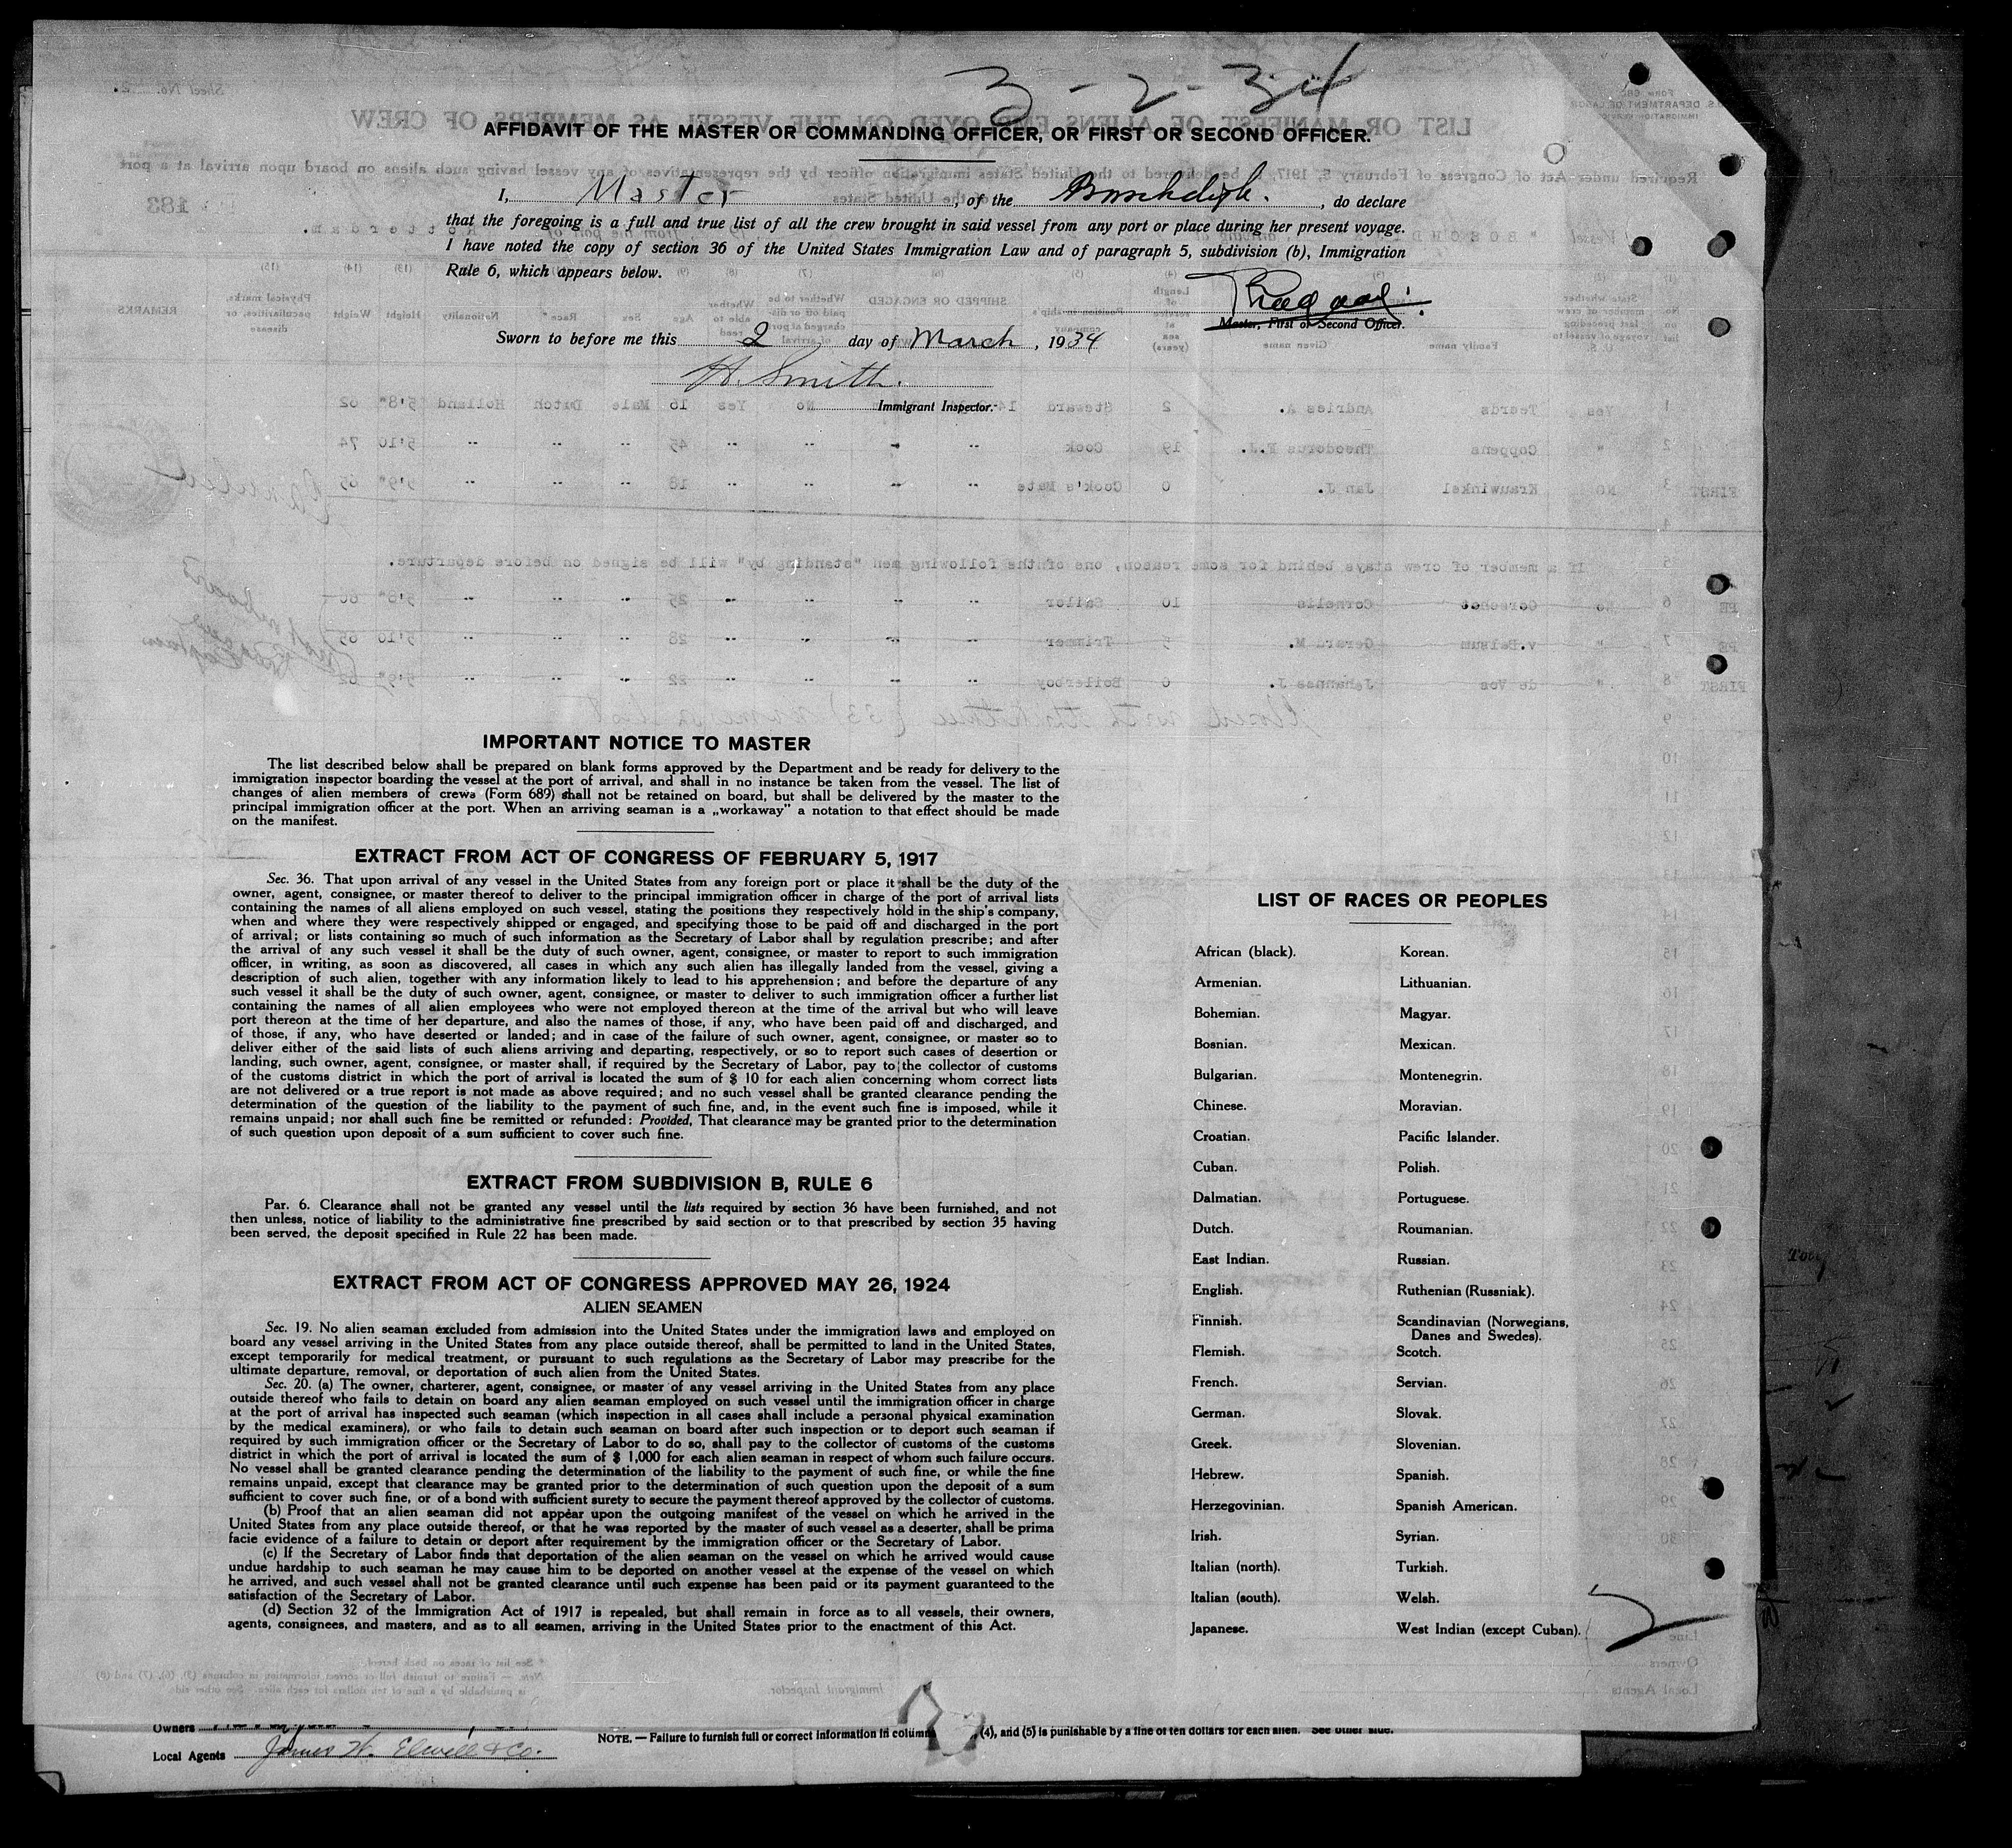 3-2-34
AFFIDAVIT OF THE MASTER OR COMMANDING OFFICER, OR FIRST OR SECOND OFFICER.
I, Master, of the Boschdijk., do declare
that the foregoing is a full and true list of all the crew brought in said vessel from any port or place during her present voyage.
I have noted the copy of section 36 of the United States Immigration Law and of paragraph 5, subdivision (b), Immigration
Rule 6, which appears below.
Master, First or Second Officer.
Sworn to before me this 2 day of March, 1934
H. Smith.
Immigrant Inspector.
IMPORTANT NOTICE TO MASTER
The list described below shall be prepared on blank forms approved by the Department and be ready for delivery to the
immigration inspector boarding the vessel at the port of arrival, and shall in no instance be taken from the vessel. The list of
changes of alien members of crews (Form 689) shall not be retained on board, but shall be delivered by the master to the
principal immigration officer at the port. When an arriving seaman is a „workaway" a notation to that effect should be made
on the manifest.
EXTRACT FROM ACT OF CONGRESS OF FEBRUARY 5, 1917
Sec. 36. That upon arrival of any vessel in the United States from any foreign port or place it shall be the duty of the
owner, agent, consignee, or master thereof to deliver to the principal immigration officer in charge of the port of arrival lists
containing the names of all aliens employed on such vessel, stating the positions they respectively hold in the ship's company,
when and where they were respectively shipped or engaged, and specifying those to be paid off and discharged in the port
of arrival; or lists containing so much of such information as the Secretary of Labor shall by regulation prescribe; and after
the arrival of any such vessel it shall be the duty of such owner, agent, consignee, or master to report to such immigration
officer, in writing, as soon as discovered, all cases in which any such alien has illegally landed from the vessel, giving a
description of such alien, together with any information likely to lead to his apprehension; and before the departure of any
such vessel it shall be the duty of such owner, agent, consignee, or master to deliver to such immigration officer a further list
containing the names of all alien employees who were not employed thereon at the time of the arrival but who will leave
port thereon at the time of her departure, and also the names of those, if any, who have been paid off and discharged, and
of those, if any, who have deserted or landed; and in case of the failure of such owner, agent, consignee, or master so to
deliver either of the said lists of such aliens arriving and departing, respectively, or so to report such cases of desertion or
landing, such owner, agent, consignee, or master shall, if required by the Secretary of Labor, pay to the collector of customs
of the customs district in which the port of arrival is located the sum of $ 10 for each alien concerning whom correct lists
are not delivered or a true report is not made as above required; and no such vessel shall be granted clearance pending the
determination of the question of the liability to the payment of such fine, and, in the event such fine is imposed, while it
remains unpaid; nor shall such fine be remitted or refunded: Provided, That clearance may be granted prior to the determination
of such question upon deposit of a sum sufficient to cover such fine.
EXTRACT FROM SUBDIVISION B, RULE 6
Par. 6. Clearance shall not be granted any vessel until the lists required by section 36 have been furnished, and not
then unless, notice of liability to the administrative fine prescribed by said section or to that prescribed by section 35 having
been served, the deposit specified in Rule 22 has been made.
EXTRACT FROM ACT OF CONGRESS APPROVED MAY 26, 1924
ALIEN SEAMEN
Sec. 19. No alien seaman excluded from admission into the United States under the immigration laws and employed on
board any vessel arriving in the United States from any place outside thereof, shall be permitted to land in the United States,
except temporarily for medical treatment, or pursuant to such regulations as the Secretary of Labor may prescribe for the
ultimate departure, removal, or deportation of such alien from the United States.
Sec. 20. (a) The owner, charterer, agent, consignee, or master of any vessel arriving in the United States from any place
outside thereof who fails to detain on board any alien seaman employed on such vessel until the immigration officer in charge
at the port of arrival has inspected such seaman (which inspection in all cases shall include a personal physical examination
by the medical examiners), or who fails to detain such seaman on board after such inspection or to deport such seaman if
required by such immigration officer or the Secretary of Labor to do so, shall pay to the collector of customs of the customs
district in which the port of arrival is located the sum of $ 1,000 for each alien seaman in respect of whom such failure occurs.
No vessel shall be granted clearance pending the determination of the liability to the payment of such fine, or while the fine
remains unpaid, except that clearance may be granted prior to the determination of such question upon the deposit of a sum
sufficient to cover such fine, or of a bond with sufficient surety to secure the payment thereof approved by the collector of customs.
(b) Proof that an alien seaman did not appear upon the outgoing manifest of the vessel on which he arrived in the
United States from any place outside thereof, or that he was reported by the master of such vessel as a deserter, shall be prima
facie evidence of a failure to detain or deport after requirement by the immigration officer or the Secretary of Labor.
(c) If the Secretary of Labor finds that deportation of the alien seaman on the vessel on which he arrived would cause
undue hardship to such seaman he may cause him to be deported on another vessel at the expense of the vessel on which
he arrived, and such vessel shall not be granted clearance until such expense has been paid or its payment guaranteed to the
satisfaction of the Secretary of Labor.
(d) Section 32 of the Immigration Act of 1917 is repealed, but shall remain in force as to all vessels, their owners,
agents, consignees, and masters, and as to all seamen, arriving in the United States prior to the enactment of this Act.
LIST OF RACES OR PEOPLES
African (black). Korean.
Armenian. Lithuanian.
Bohemian. Magyar.
Bosnian. Mexican.
Bulgarian. Montenegrin.
Chinese. Moravian.
Croatian. Pacific Islander.
Cuban. Polish.
Dalmatian. Portuguese.
Dutch. Roumanian.
East Indian. Russian.
English. Ruthenian (Russniak).
Finnish. Scandinavian (Norwegians,
Danes and Swedes).
Flemish. Scotch.
French. Servian.
German. Slovak.
Greek. Slovenian.
Hebrew. Spanish.
Herzegovinian. Spanish American.
Irish. Syrian.
Italian (north). Turkish.
Italian (south). Welsh.
Japanese. West Indian (except Cuban).
2
Owners
NOTE. — Failure to furnish full or correct information in column (4), and (5) is punishable by a fine of ten dollars for each alien. See other side.
Local Agents James W. Elwell & Co.